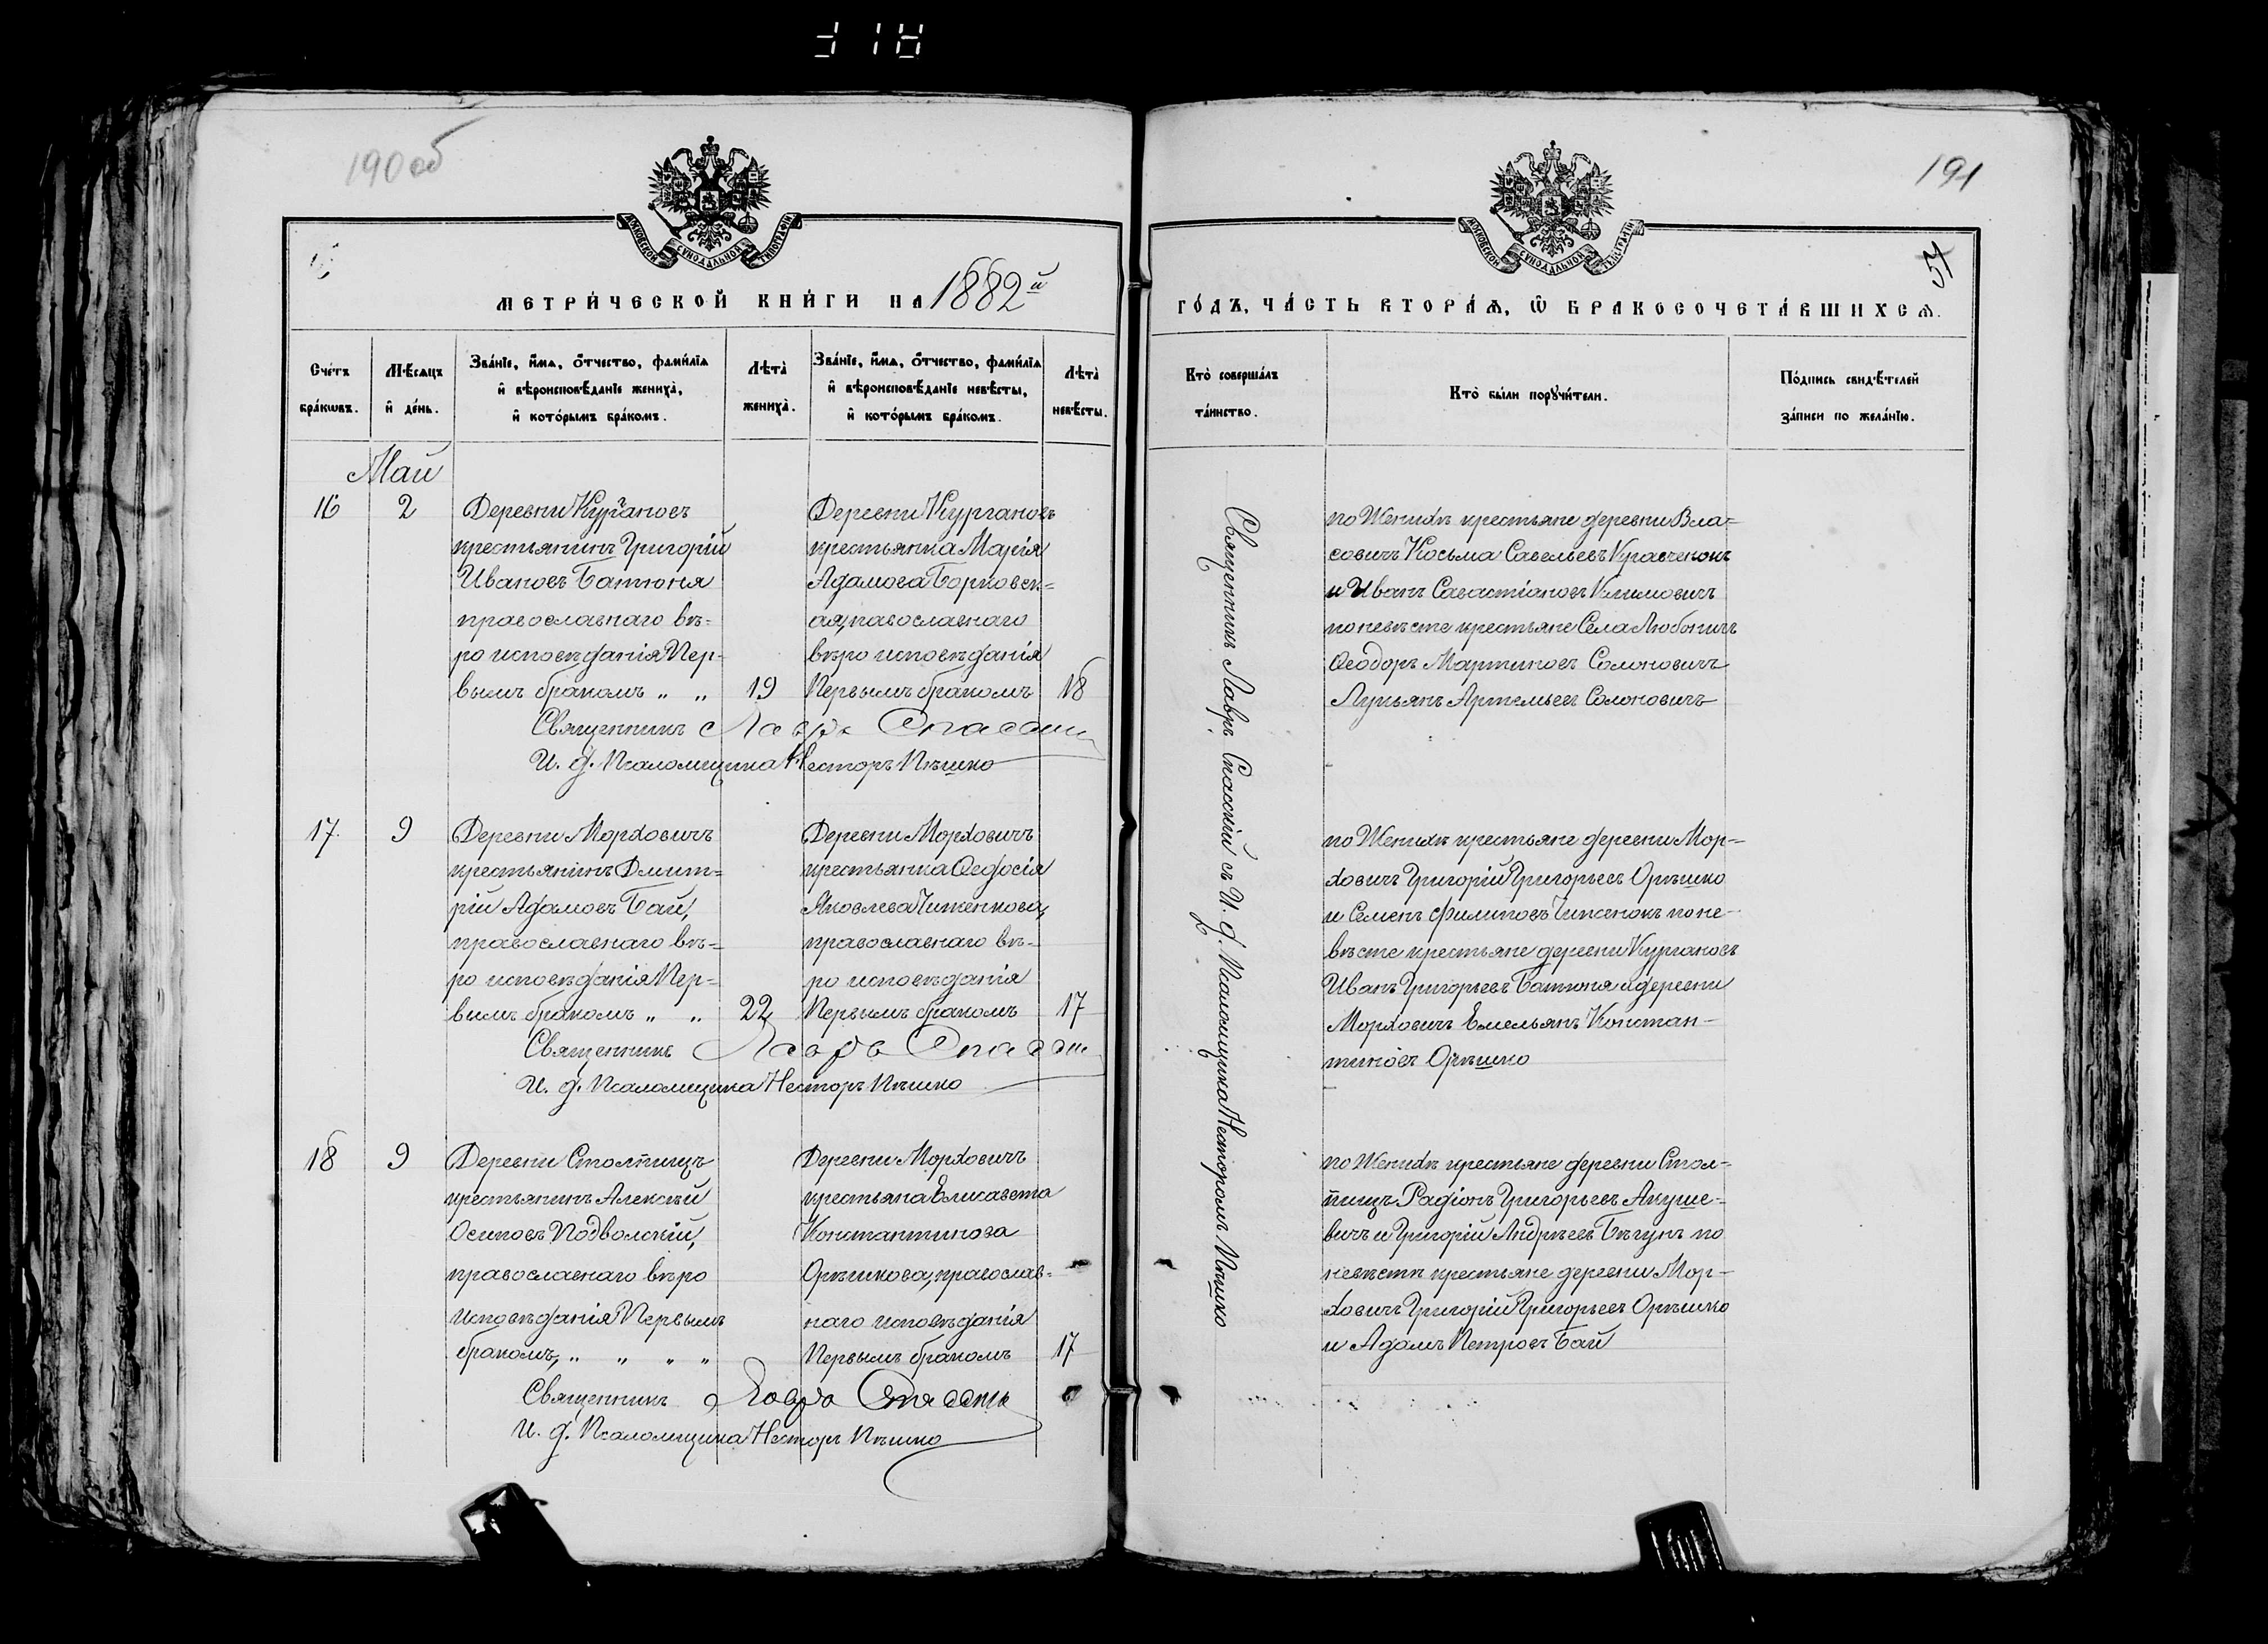 190 об
191
МОСКОВСКОЙ СѴНОДАЛЬНОЙ ТИПОГРАФІИ
МОСКОВСКОЙ СѴНОДАЛЬНОЙ ТИПОГРАФІИ
МЕТРИ́ЧЕСКОЙ КНИ́ГИ НА 1882й
ГО́ДЪ, ЧА́СТЬ ВТОРА́Ѧ, Ѽ БРАКОСОЧЕТА́ВШИХСѦ.
Сче́тъ
бра́кѡвъ.
Мѣ́сѧцъ
и҆ де́нь.
Зва́нїе, и҆́мѧ, ѻ҆́тчество, фами́лїѧ
и҆ вѣроисповѣ́данїе жениха̀,
и҆ кото́рымъ бра́комъ.
Лѣ́та
жениха̀.
Зва́нїе, и҆́мѧ, ѻ҆́тчество, фами́лїѧ
и҆ вѣроисповѣ́данїе невѣ́сты,
и҆ кото́рымъ бра́комъ.
Лѣ́та
невѣ́сты.
Кто̀ соверша́лъ
та́инство.
Кто̀ бы́ли порꙋчи́тели.
По́дпись свидѣ́телей
за́писи по жела́нїю.
Май
16
2
Деревни Кургановъ
крестьянинъ Григорій
Ивановъ Батюня
православнаго вѣ-
ро исповѣданія Пер-
вымъ бракомъ „ „
19
Деревни Кургановъ
крестьянка Марія
Адамова Борковск=
ая, павославнаго
вѣро исповѣданія
Первымъ бракомъ
18
Священникъ Лавръ Спасскій
И. д. Псаломщика Несторъ Пѣшко
по Женихѣ крестьяне деревни Вла=
совичъ Косьма Савельевъ Кравченокъ
и Иванъ Савастіановъ Климовичъ
по невѣсте крестьяне Села Любоничъ
Ѳеодоръ Мартиновъ Солоновичъ
Лукьянъ Артемьевъ Солоновичъ
17.
9
Деревни Морховичъ
крестьянинъ Дмит=
рій Адамовъ Бай,
православнаго вѣ=
ро исповѣданія Пер=
вымъ бракомъ „ „
22
Деревни Морховичъ
крестьянка Ѳедосія
Яковлева Чиженкова,
православнаго вѣ-
ро исповѣданія
Первымъ бракомъ
17
Священникъ Лавръ Спасскій
И. д. Псаломщика Несторъ Пѣшко
по Женихѣ крестьяне деревни Мор=
ховичъ Григорій Григорьевъ Орѣшко
и Семенъ Филиповъ Чиженокъ по не-
вѣсте крестьяне деревни Кургановъ
Иванъ Григорьевъ Батюня и деревни
Морховичъ Емельянъ Констан-
тиновъ Орѣшко
18
9
Деревни Столпищъ
крестьянинъ Алексѣй
Осиповъ Подвольскій,
православнаго вѣро
исповѣданія Первымъ
бракомъ, „ „ „ „
Деревни Морховичъ
крестьяна Елисавета
Константинова
Орѣшкова, православ-
наго исповѣданія
Первымъ бракомъ
17
Священникъ Лавръ Спасскій
И. д. Псаломщика Несторъ Пѣшко
по Женихѣ крестьяне деревни Стол=
пищъ Радіонъ Григорьевъ Акуше-
вичъ и Григорій Андрѣевъ Бѣгунъ по
невѣстѣ крестьяне деревни Мор-
ховичъ Григорій Григорьевъ Орѣшко
и Адамъ Петровъ Бай
Священникъ Лавръ Спасскій съ И. д. Псаломщика Несторомъ Пѣшко